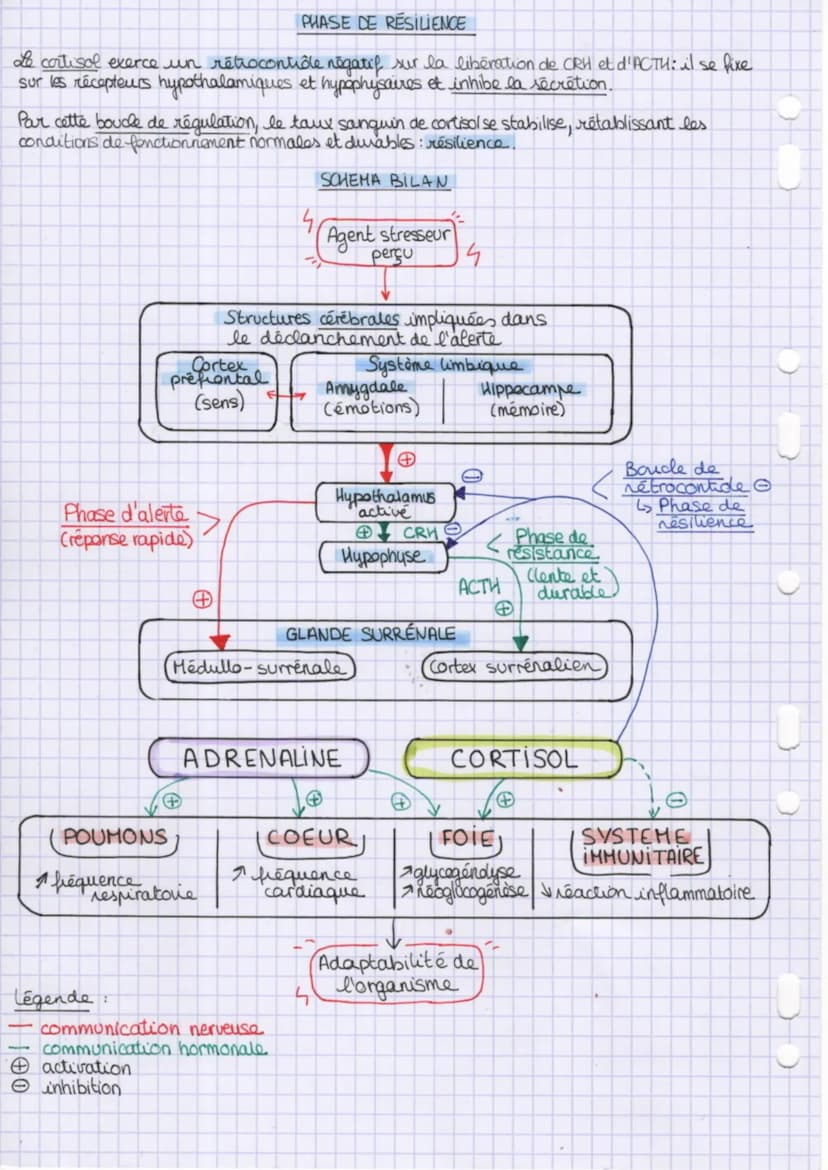 PHASE DE RÉSILIENCE
Le cortisol exerce un rétrocontrôle négatif sur la libération de CRH et d'ACTH : il se fixe
sur les récepteurs hypothalamiques et hypophysaires et inhibe la sécrétion.
Par cette boucle de régulation, le taux sanguin de cortisol se stabilise, rétablissant les
conditions de fonctionnement normales et durables : résilience.
SCHEMA BILAN
Agent stresseur
perçu
Structures cérébrales impliquées dans
le déclanchement de l'alerte
Cortex
préfrontal
(sens)
Système limbique
Amygdale
(émotions)
Hippocampe
(mémoire)
⊕
⊖
Boucle de
rétrocontrole ⊖
↳ Phase de
résilience
Hypothalamus
activé
Phase d'alerte
(réponse rapide)
⊕ CRH ⊖
Hypophyse
Phase de
résistance
(lente et
durable)
ACTH
⊕
⊕
GLANDE SURRÉNALE
Médullo-surrénale
Cortex surrénalien
ADRENALINE
CORTISOL
⊕ ⊕ ⊕ ⊕ ⊖
POUMONS
↗ fréquence
respiratoire
COEUR
↗ fréquence
cardiaque
FOIE
↗ glycogénolyse
↗ néoglucogénèse
SYSTEME
IMMUNITAIRE
↘ réaction inflammatoire
Adaptabilité de
l'organisme
Légende :
— communication nerveuse
— communication hormonale
⊕ activation
⊖ inhibition